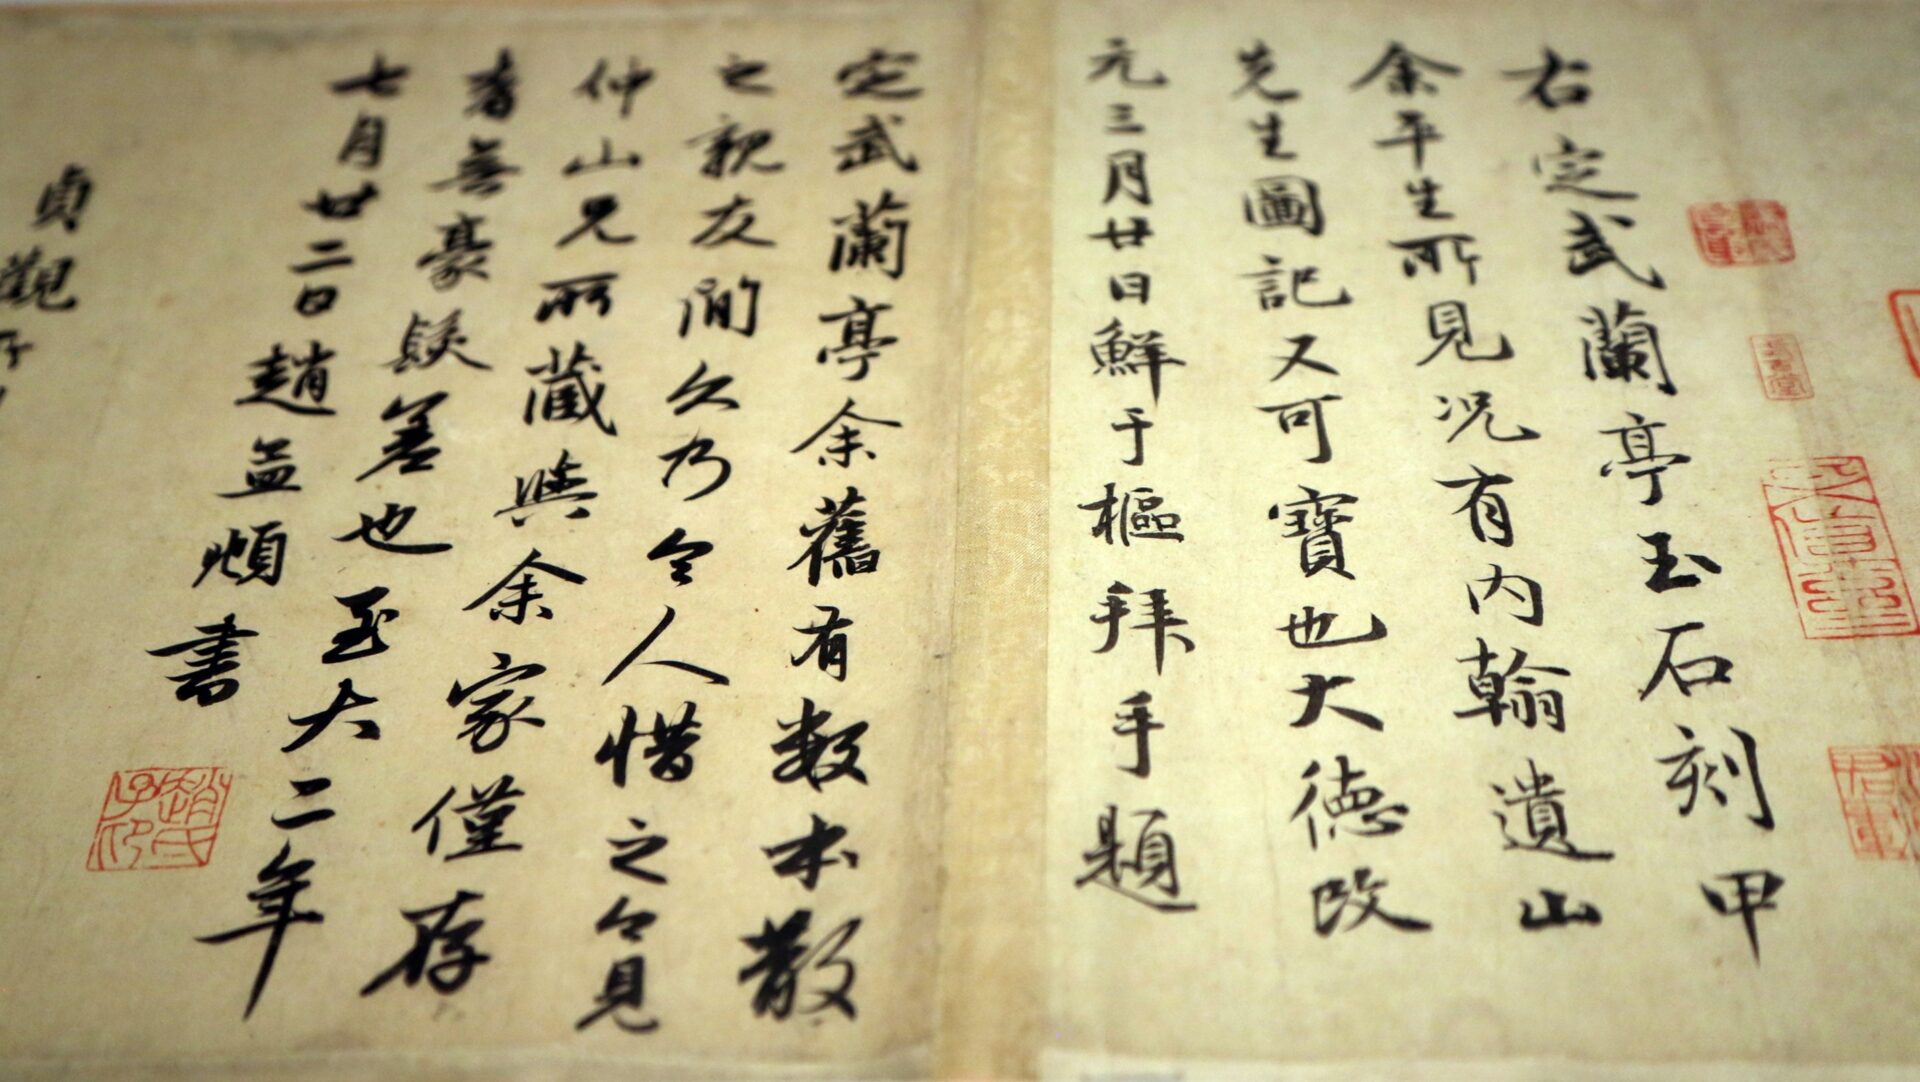 右定武蘭亭玉石刻甲
余平生所見况有内翰遺山
先生圖記又可寶也大德改
元三月廿日鮮于樞拜手題
定武蘭亭余舊有数本散
之親友間久乃令人惜之今見
仲山兄所藏與余家僅存
者無豪髮差也至大二年
七月廿二日趙孟頫書
貞觀
趙氏子印